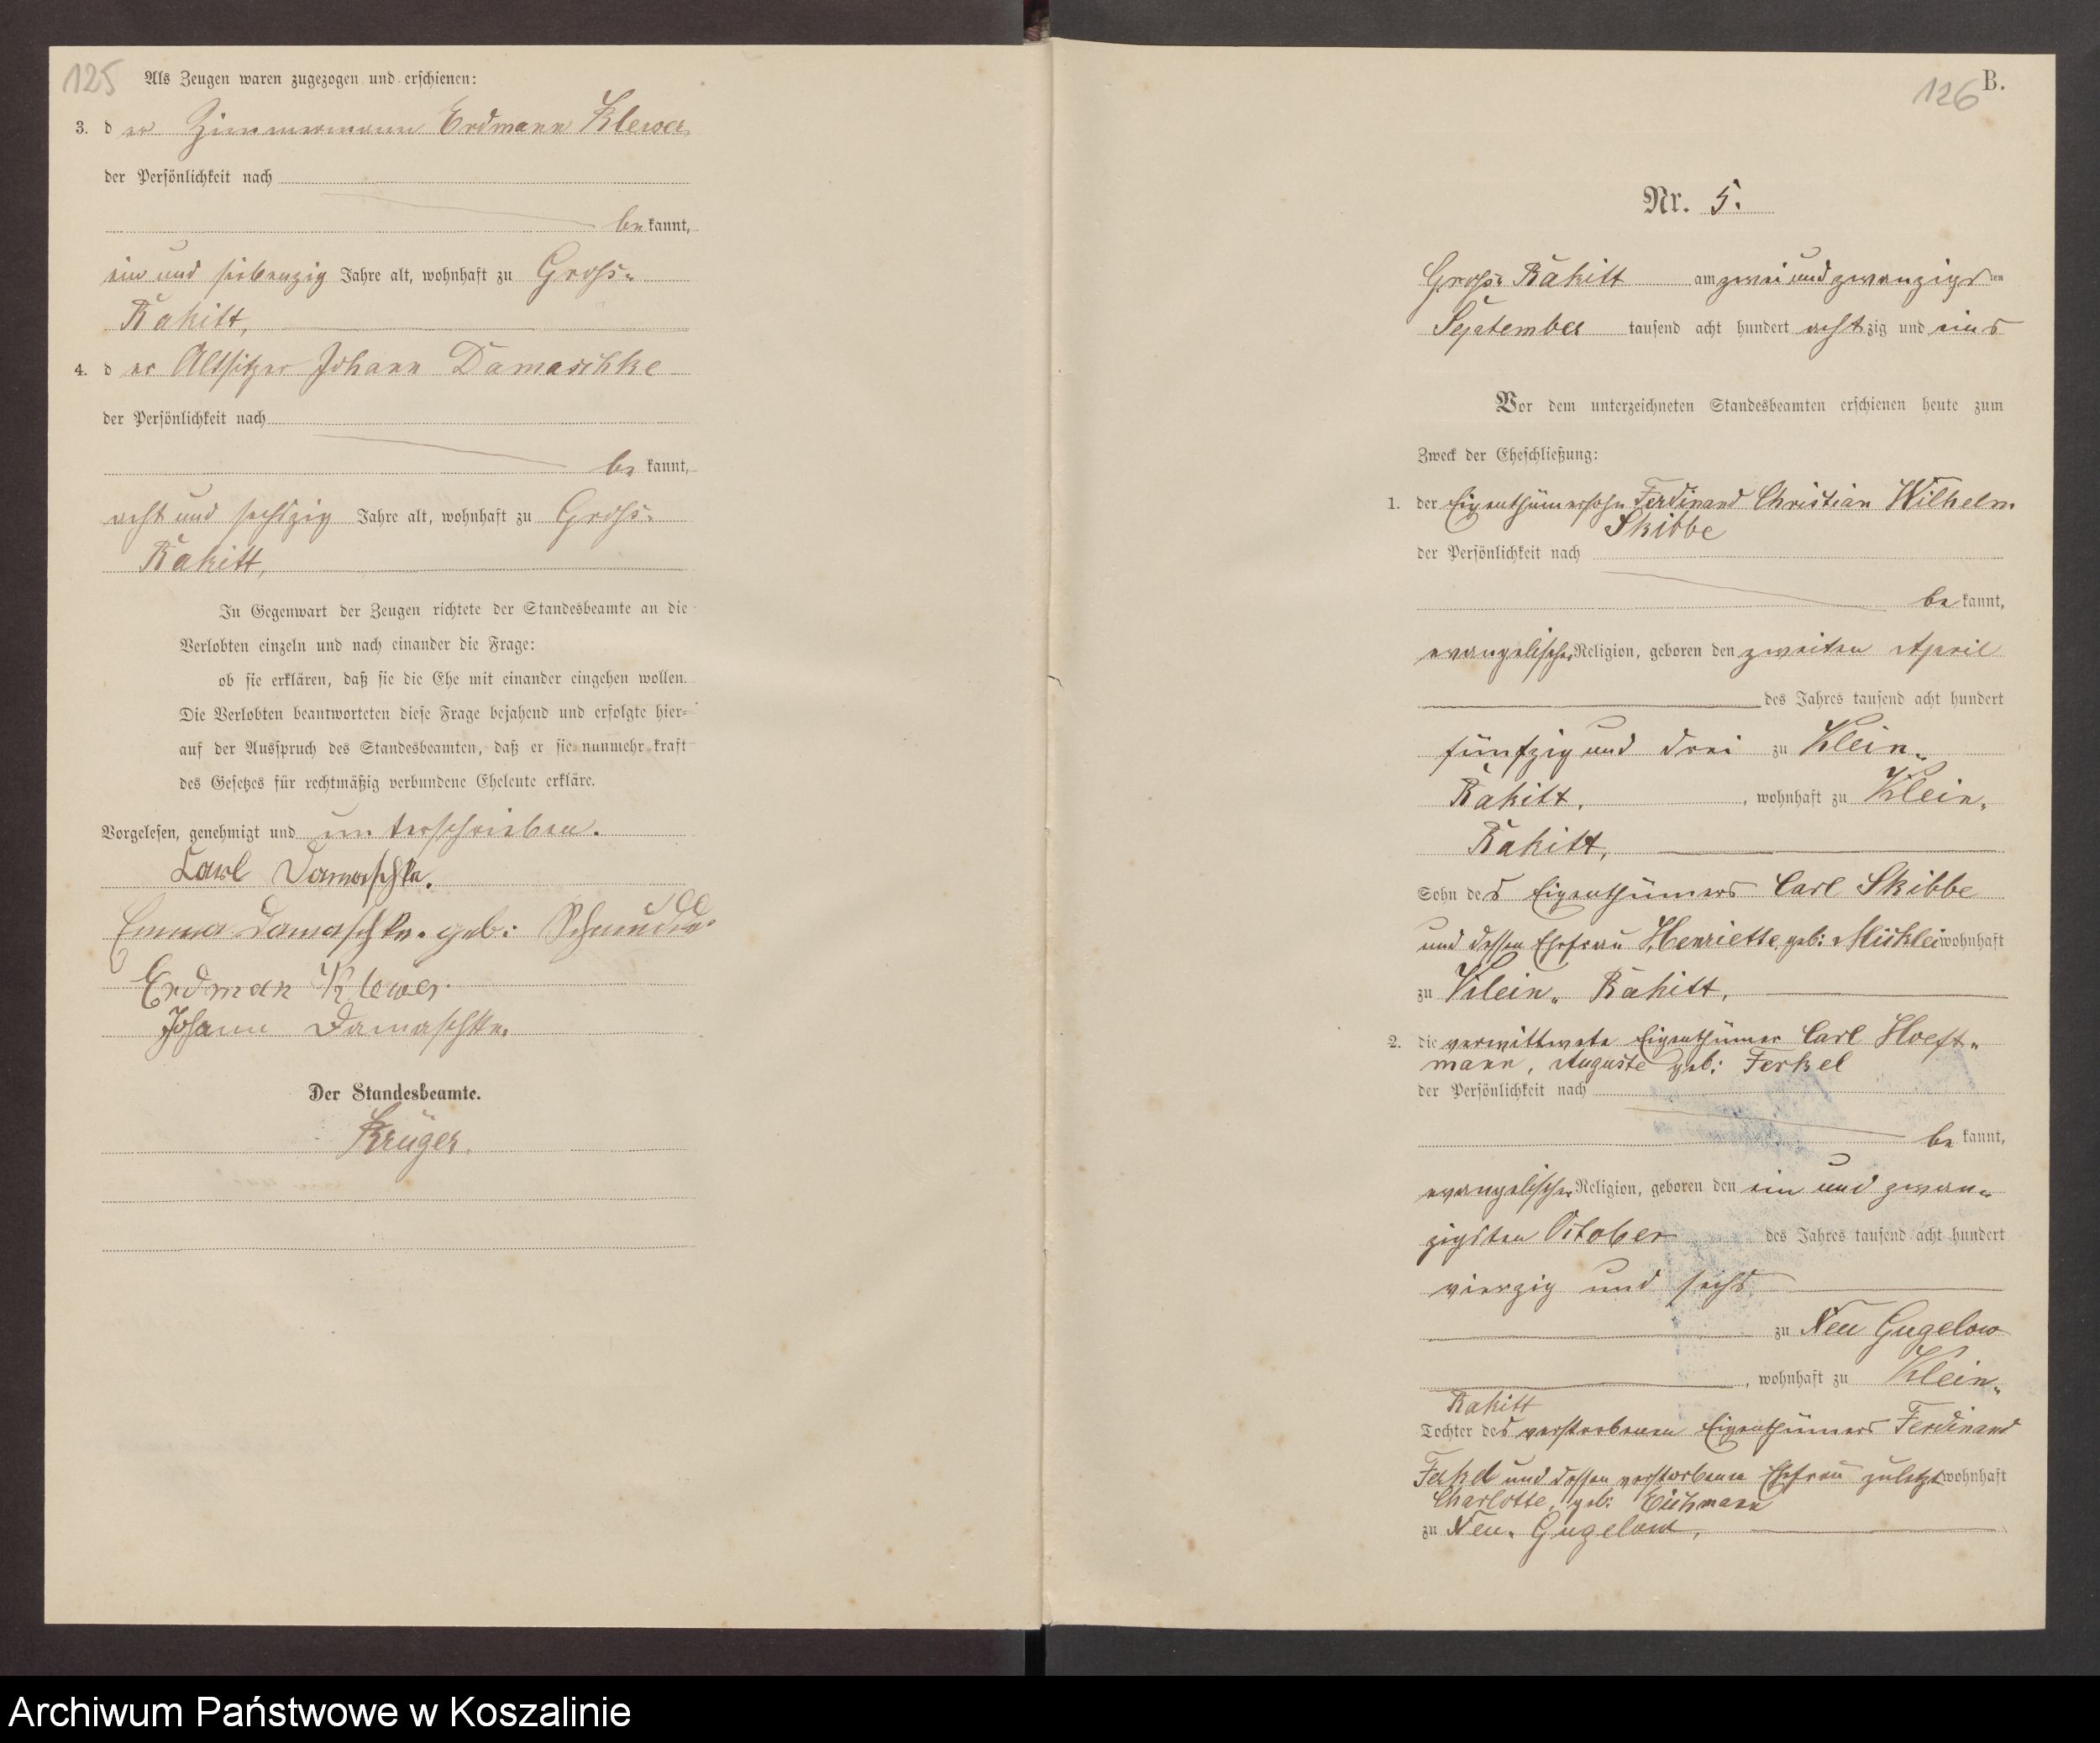 125
Als Zeugen waren zugezogen und erschienen:
3. der Zimmermann Erdmann Klewer
der Persönlichkeit nach
bekannt,
ein und siebenzig Jahre alt, wohnhaft zu Gross-
Rakitt,
4. der Altsitzer Johann Damaschke
der Persönlichkeit nach
bekannt,
acht und sechszig Jahre alt, wohnhaft zu Gross-
Rakitt,
In Gegenwart der Zeugen richtete der Standesbeamte an die
Verlobten einzeln und nach einander die Frage:
ob sie erklären, daß sie die Ehe mit einander eingehen wollen.
Die Verlobten beantworteten diese Frage bejahend und erfolgte hier-
auf der Ausspruch des Standesbeamten, daß er sie nunmehr kraft
des Gesetzes für rechtmäßig verbundene Eheleute erkläre.
Vorgelesen, genehmigt und unterschrieben.
Carl Damaschke.
Emma Damaschke. geb:
Erdman Klewer.
Johann Damaschke.
Der Standesbeamte.
Krüger.
126
B.
Nr. 5.
Gross-Rakitt am zwei und zwanzigsten
September tausend acht hundert achtzig und eins
Vor dem unterzeichneten Standesbeamten erschienen heute zum
Zweck der Eheschließung:
1. der Eigenthümersohn Ferdinand Christian Wilhelm
Skibbe
der Persönlichkeit nach
bekannt,
evangelischer Religion, geboren den zweiten April
des Jahres tausend acht hundert
fünfzig und drei zu Klein-
Rakitt, wohnhaft zu Klein-
Rakitt,
Sohn des Eigenthümers Carl Skibbe
und dessen Ehefrau Henriette, geb: wohnhaft
zu Klein-Rakitt,
2. die verwittwete Eigenthümer Carl Hoeft-
mann, Auguste geb: Ferkel
der Persönlichkeit nach
bekannt,
evangelischer Religion, geboren den ein und zwan-
zigsten October des Jahres tausend acht hundert
vierzig und sechs
zu Neu Gugelow
, wohnhaft zu Klein-
Rakitt
Tochter des verstorbenen Eigenthümers Ferdinand
Ferkel und dessen verstorbene Ehefrau zuletzt wohnhaft
Charlotte, geb: Eichmann
zu Neu-Gugelow,
Archiwum Państwowe w Koszalinie